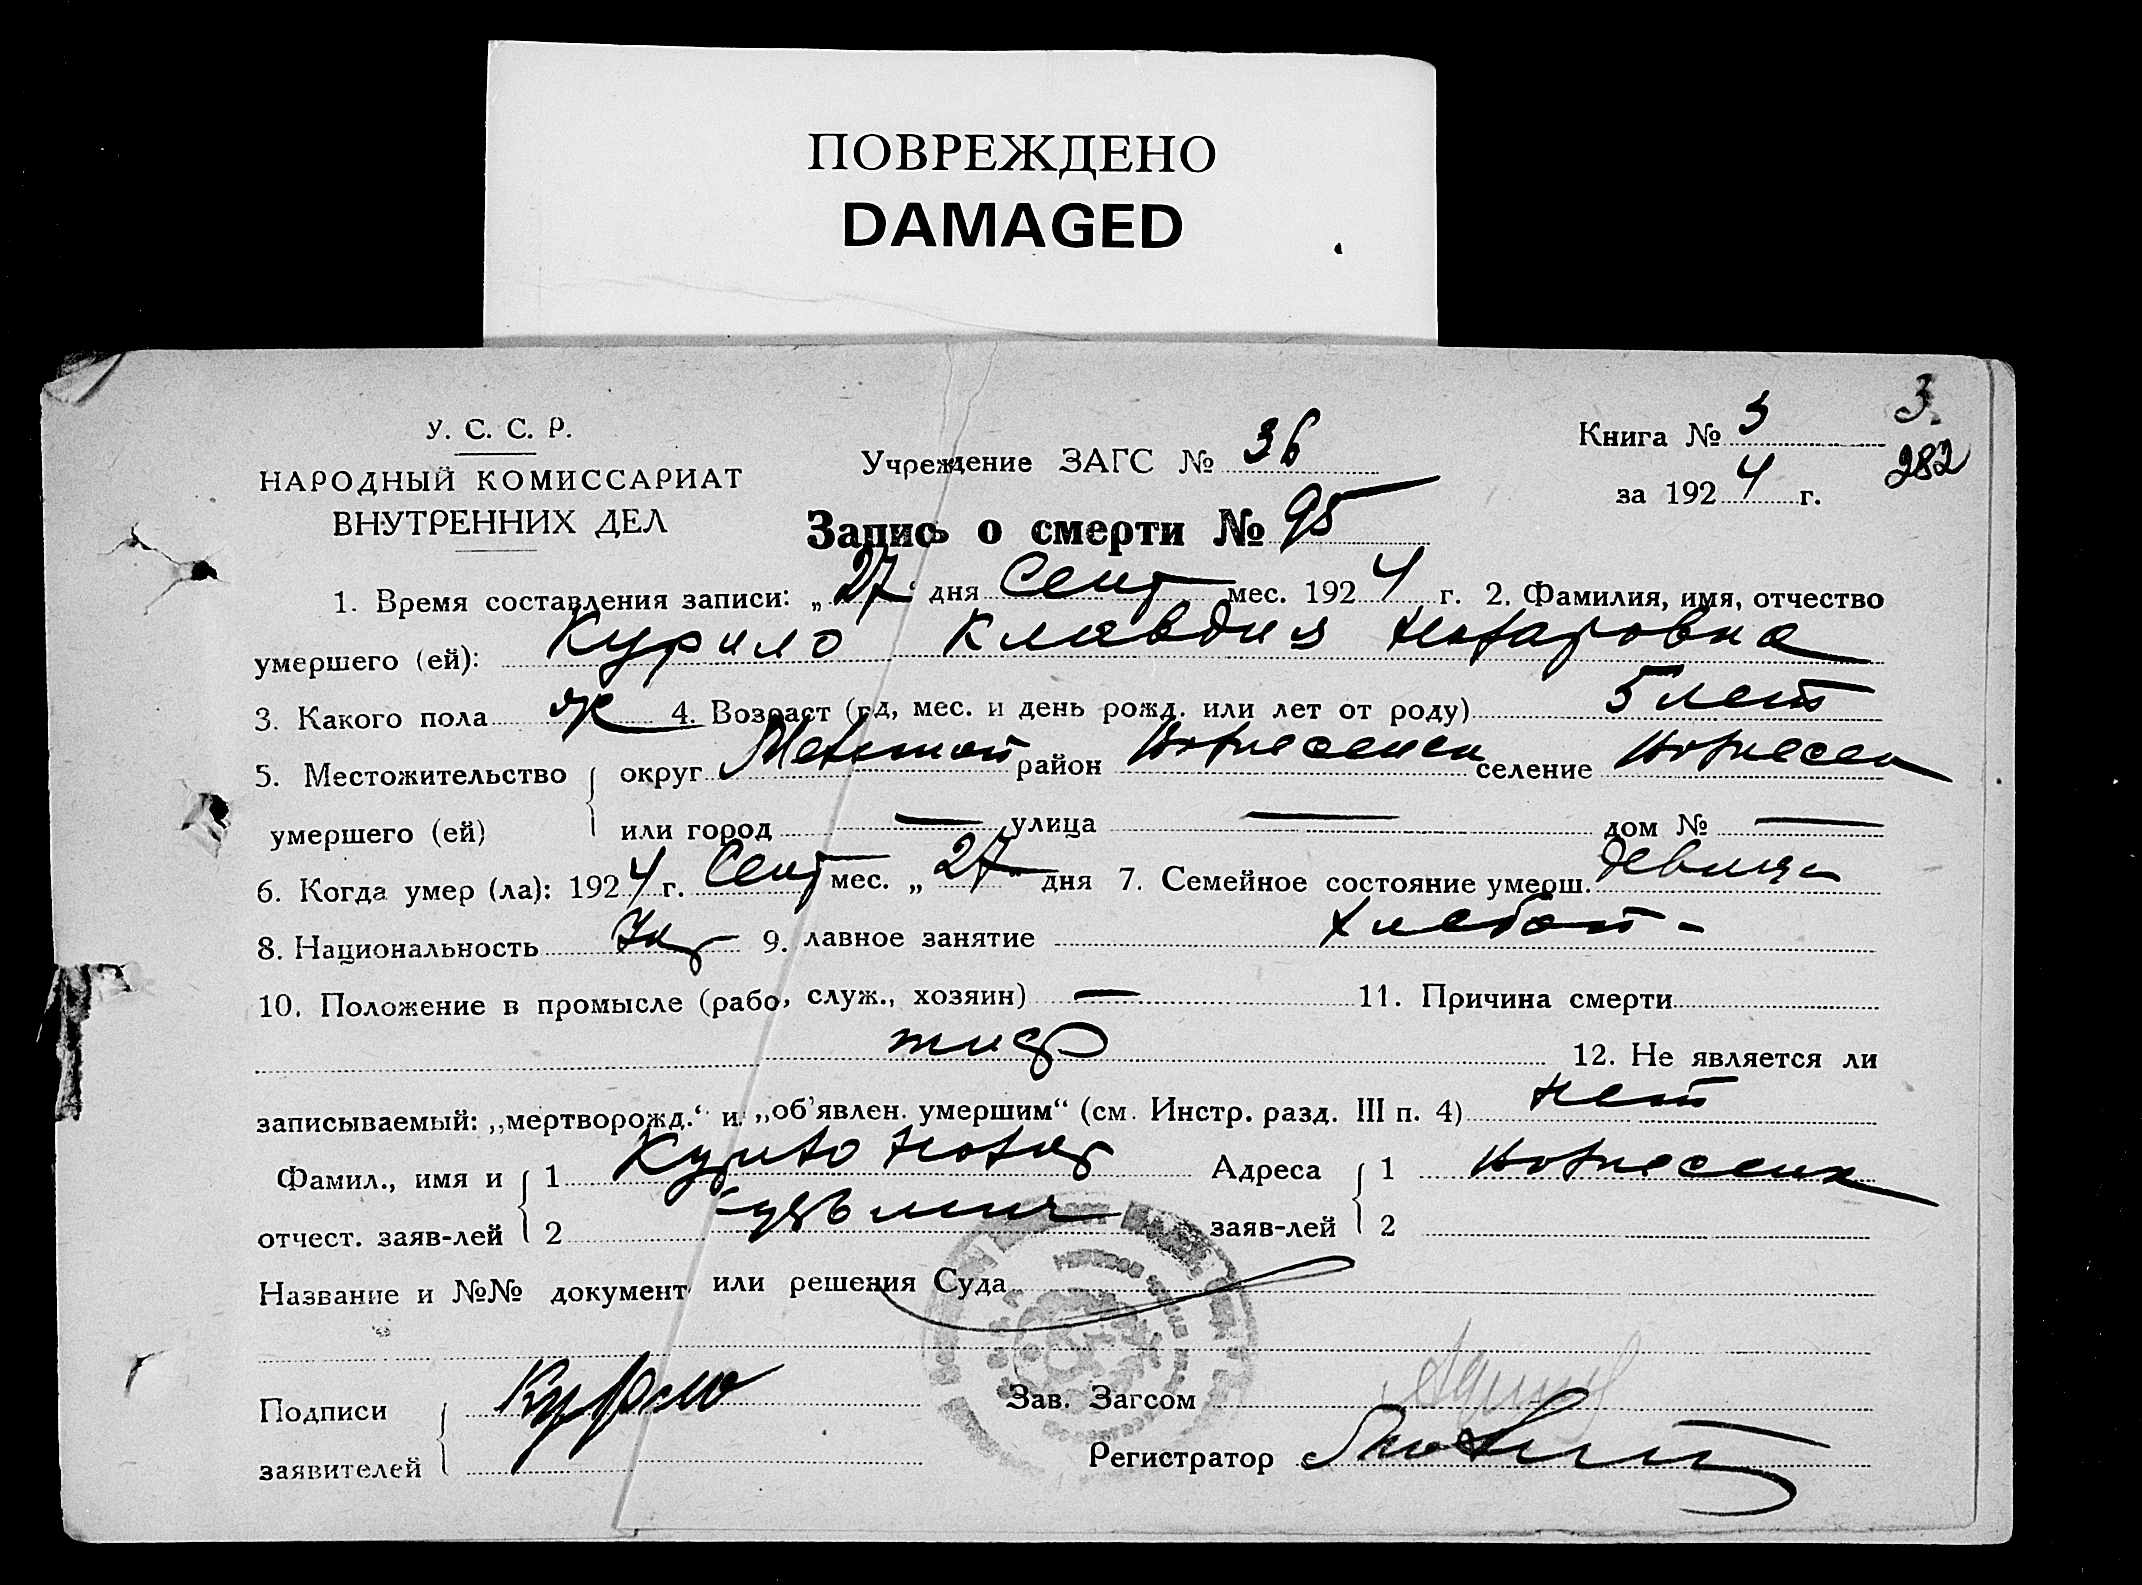 ПОВРЕЖДЕНО
DAMAGED
У. С. С. Р.
НАРОДНЫЙ КОМИССАРИАТ
ВНУТРЕННИХ ДЕЛ
Учреждение ЗАГС № 36
Книга № 3
за 1924 г.
3.
282
Запись о смерти № 95
1. Время составления записи: „27“ дня Сент мес. 1924 г. 2. Фамилия, имя, отчество
умершего (ей): Курило Клавдия
3. Какого пола ж 4. Возраст (гд, мес. и день рожд. или лет от роду) 5 лет
5. Местожительство округ район Вознесенск селение Вознесен
умершего (ей) или город — улица — дом № —
6. Когда умер (ла): 1924 г. Сент мес. „27“ дня 7. Семейное состояние умерш. девица
8. Национальность Укр 9. лавное занятие хлебоп-
10. Положение в промысле (рабо, служ., хозяин) — 11. Причина смерти
тиф 12. Не является ли
записываемый: „мертворожд.“ и. „об'явлен. умершим“ (см. Инстр. разд. III п. 4) нет
Фамил., имя и 1 Курило Адреса 1 Вознесенк
отчест. заяв-лей 2 заяв-лей 2
Название и №№ документ или решения Суда
Подписи Курило Зав. Загсом
заявителей Регистратор